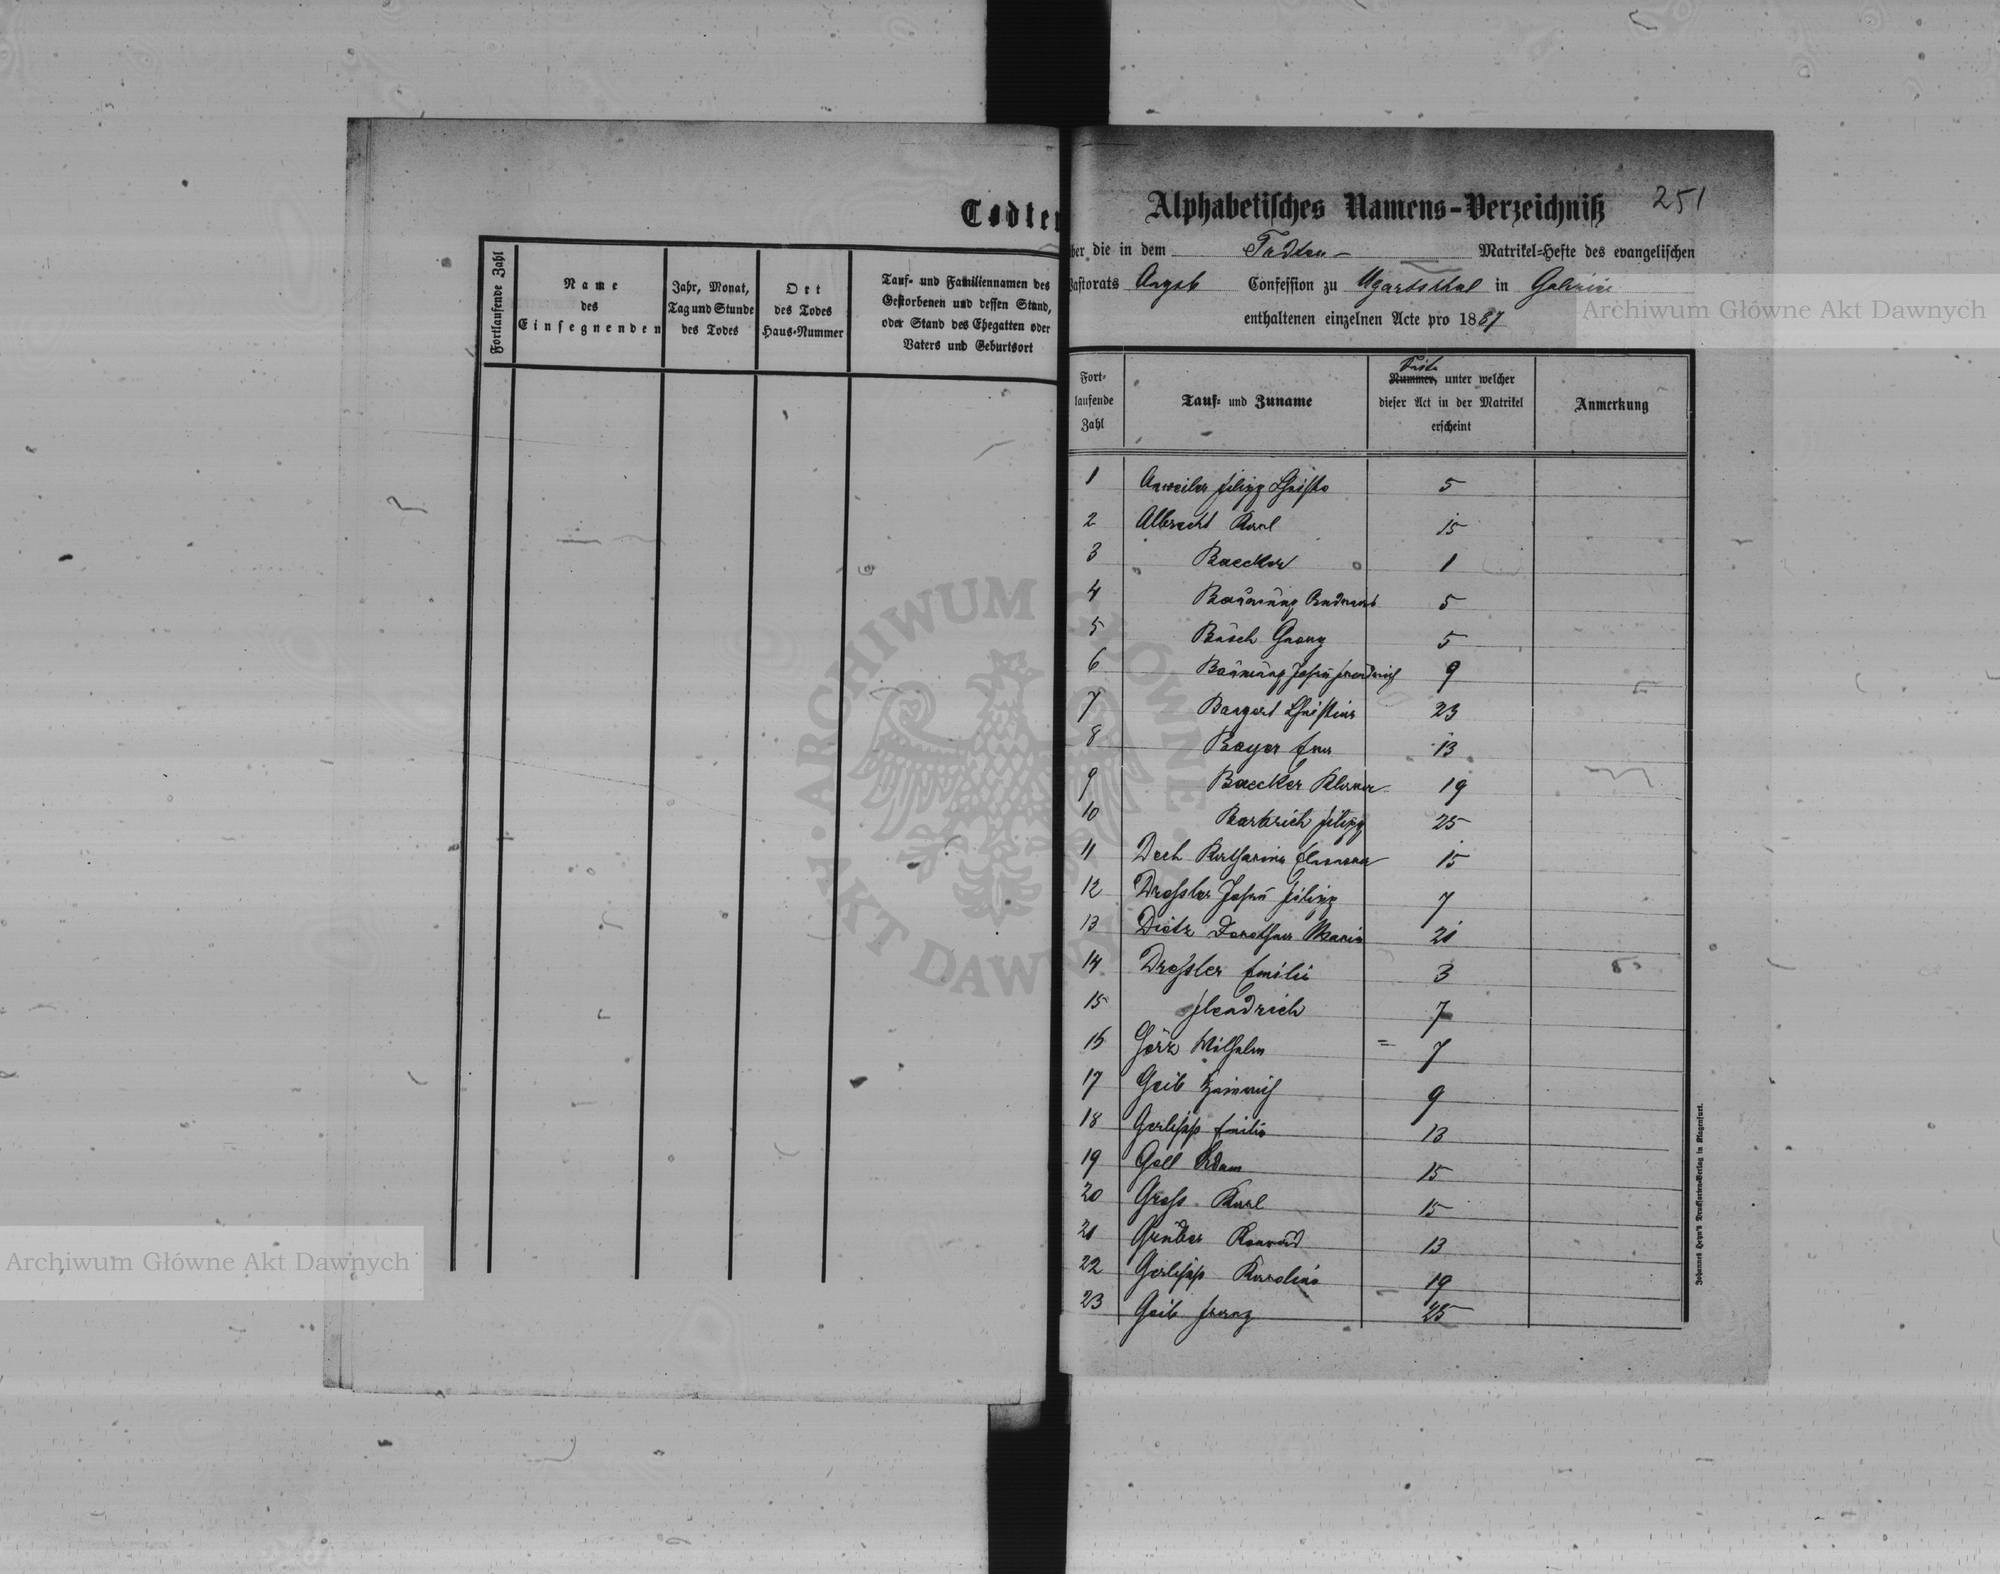 Todten
Fortlaufende Zahl
Name
des
Einsegnenden
Jahr, Monat,
Tag und Stunde
des Todes
Ort
des Todes
Haus-Nummer
Tauf- und Familiennamen des
Gestorbenen und dessen Stand,
oder Stand des Ehegatten oder
Vaters und Geburtsort
Alphabetisches Namens-Verzeichniß 251
über die in dem Todten- Matrikel-Hefte des evangelischen
Pastorats Augsb Confession zu Ugartsthal in Galizien
enthaltenen einzelnen Acte pro 1887
Fort-
laufende
Zahl
Tauf- und Zuname
Seite
Nummer, unter welcher
dieser Act in der Matrikel
erscheint
Anmerkung
1 Anweiler Filipp 5
2 Albrecht Karl 15
3 Baecker 1
4 Bäumung Andreas 5
5 Büsch Georg 5
6 Bäumung Johann Friedrich 9
7 Bangert Christine 23
8 Bayer Eva 13
9 Baecker 19
10 Filipp 25
11 Dech Katharina Eleonora 15
12 Dressler Johann Filipp 7
13 Dietz Dorothea Maria 21
14 Dressler Emilie 3
15 7
16 Görz Wilhelm 7
17 Geib Heinrich 9
18 Gerlipp Emilie 13
19 Goll Adam 15
20 Gross Karl 15
21 Gruber Konrad 13
22 Gerlipp Karolina 19
23 Geib Franz 25
Johannes Heyn's Drucksorten-Verlag in Klagenfurt.
Archiwum Główne Akt Dawnych
Archiwum Główne Akt Dawnych
ARCHIWUM GŁÓWNE AKT DAWNYCH